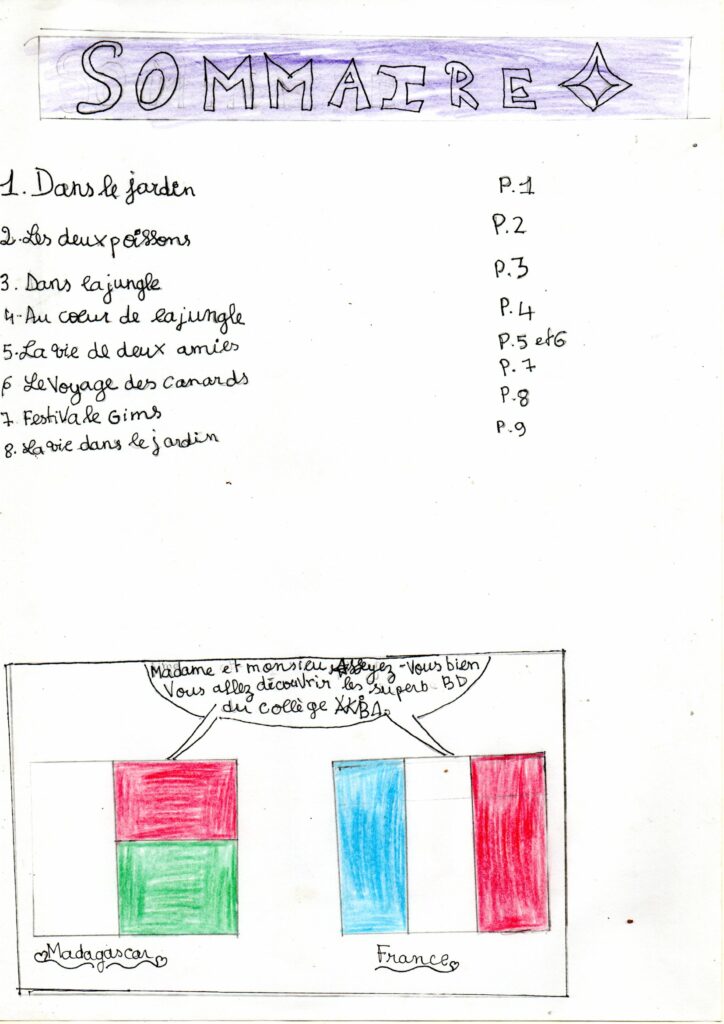 SOMMAIRE
1. Dans le jardin P.1
2. Les deux poissons P.2
3. Dans la jungle P.3
4. Au coeur de la jungle P.4
5. La vie de deux amies P.5 et 6
6 Le Voyage des canards P.7
7 Festivale Gims P.8
8. La vie dans le jardin P.9
Madame et monsieu Asseyez-vous bien
Vous allez découvrir les superb BD
du collège AKBA.
Madagascar
France